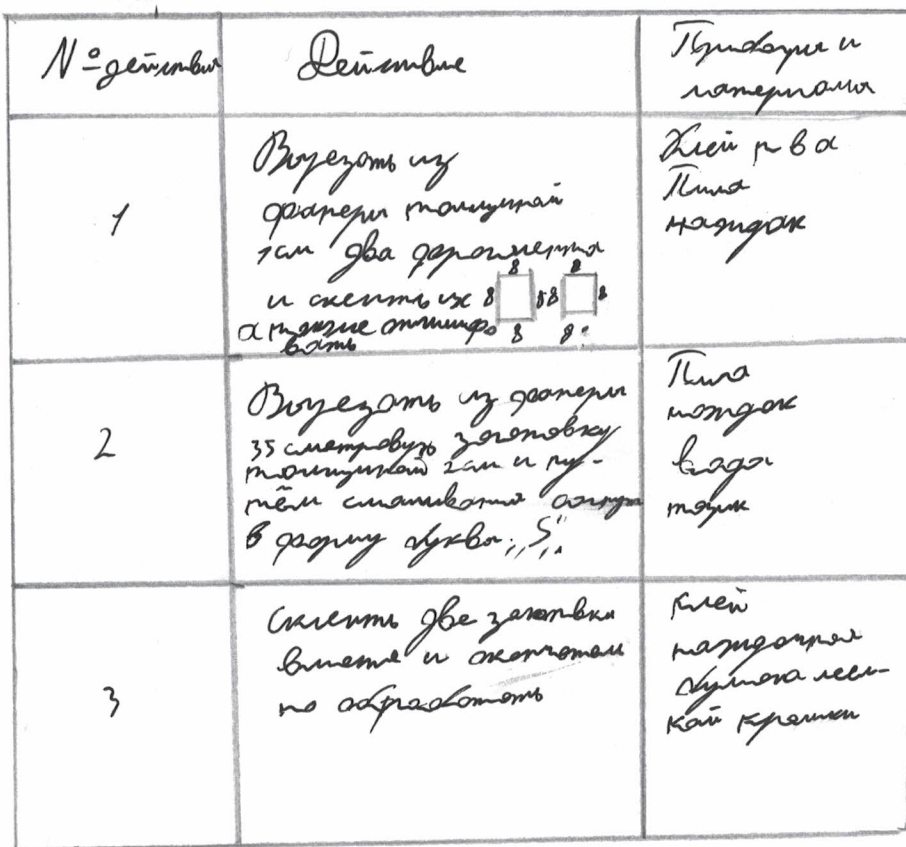 № действия
Действие
Приборы и
материалы
1
Вырезать из
фанеры толщиной
1см два фрагмента
и склеить их 8 8 8 8 8 8 8 8
а также отшлифо
вать
Клей пва
Пила
наждак
2
Вырезать из фанеры
35 сметровую заготовку
толщиной 2см и пу-
тём смачивания
в форму буквы „S„
Пила
наждак
вада
3
склеить две заготовки
вместе и окончатель
но обработать
клей
наждачная
бумага мел-
кой крошки